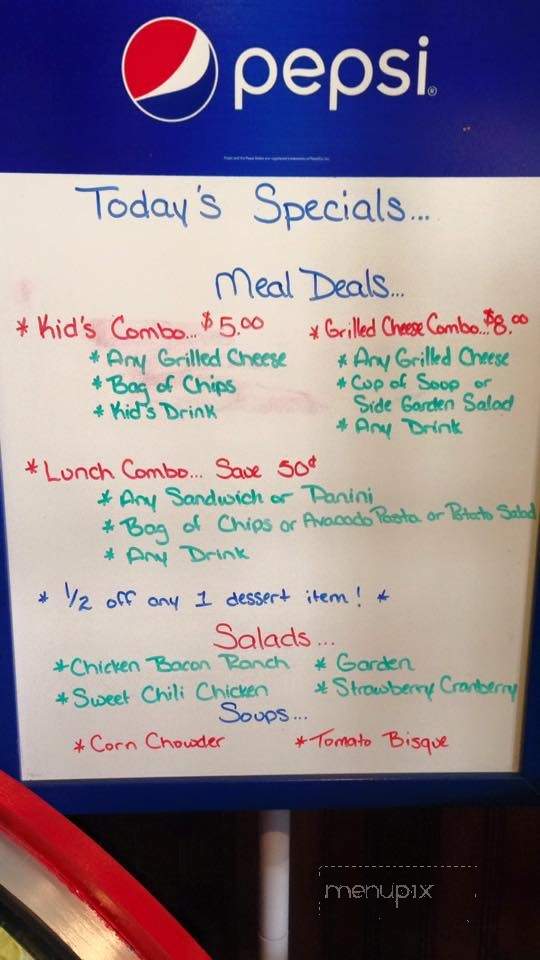 pepsi
Today's Specials...
Meal Deals...
* Kid's Combo... $5.00
* Any Grilled Cheese
* Bag of Chips
* Kid's Drink
* Grilled Cheese Combo...$8.00
* Any Grilled Cheese
* Cup of Soup or
Side Garden Salad
* Any Drink
* Lunch Combo... Save 50¢
* Any Sandwich or Panini
* Bag of Chips or Avacado Pasta or Potato Salad
* Any Drink
* 1/2 off any 1 dessert item! *
Salads...
* Chicken Bacon Ranch * Garden
* Sweet Chili Chicken * Strawberry Cranberry
Soups...
* Corn Chowder * Tomato Bisque
menupix